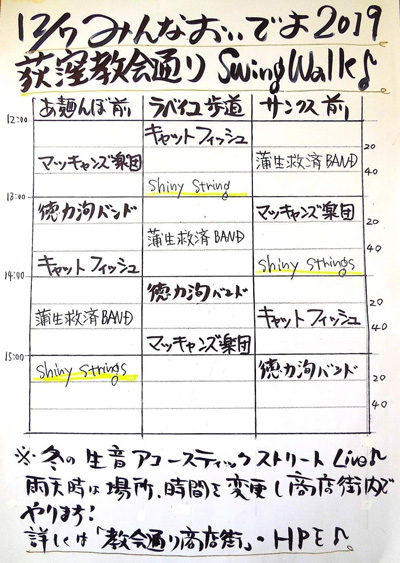 12/7 みんなおいでよ2019
荻窪教会通り Swing Walk♪
あ麺んぼ前 ラベイユ歩道 サンクス前
12:00
キャットフィッシュ
20
マッキャンズ楽団 蒲生救済BAND
40
Shiny String
13:00
徳力洵バンド マッキャンズ楽団
20
蒲生救済BAND
40
キャットフィッシュ Shiny Strings
14:00
徳力洵バンド
20
蒲生救済BAND キャットフィッシュ
40
マッキャンズ楽団
15:00
Shiny Strings 徳力洵バンド
20
40
※冬の生音アコースティックストリートLive♪
雨天時は場所、時間を変更し商店街内で
やります!
詳しくは「教会通り商店街」・HPを♪